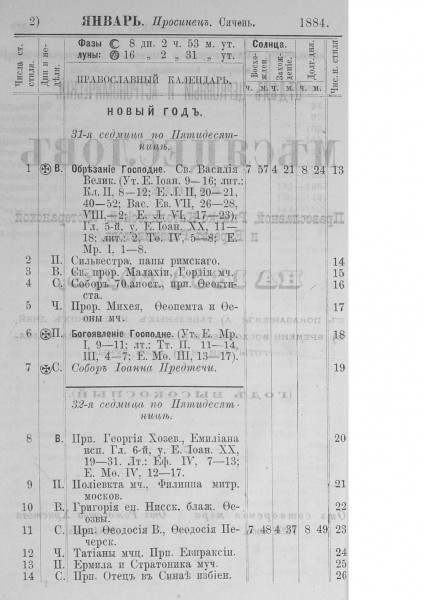 2) ЯНВАРЬ. Просинецъ. Сичень. 1884.
Числа ст. стиля.
Дни и недѣли.
Фазы 8 дн. 2 ч. 53 м. ут.
луны: 16 „ 2 „ 31 „ ут.
ПРАВОСЛАВНЫЙ КАЛЕНДАРЬ.
Солнца.
Восхожден. Захожденіе. Долг. дня. Чис. н. стиля
ч. м. ч. м. ч. м.
НОВЫЙ ГОДЪ.
31-я седмица по Пятидесят-
ницѣ.
1 В. Обрѣзаніе Господне. Св. Василія 7 57 4 21 8 24 13
Велик. (Ут. Е. Іоан. 9—16; лит.:
Кл. II, 8—12; Е. Л. II, 20—21,
40—52; Вас. Ев. VII, 26—28,
VIII,—2; Е. Л. VI, 17—23).
Гл. 5-й, у. Е. Іоан. XX, 11—
18; лит.: 2, То. IV, 5—8; Е.
Мр. I, 1—8.
2 П. Сильвестра, папы римскаго. 14
3 В. Св. прор. Малахіи, Гордія мч. 15
4 С. Соборъ 70 апост., прп. Ѳеокти- 16
ста.
5 Ч. Прор. Михея, Ѳеопемта и Ѳе- 17
оны мч.
6 П. Богоявленіе Господне. (Ут. Е. Мр. 18
I, 9—11; лт.: Тт. II, 11—14,
III, 4—7; Е. Мѳ. III, 13—17).
7 С. Соборъ Іоанна Предтечи. 19
32-я седмица по Пятидесят-
ницѣ.
8 В. Прп. Георгія Хозев., Емиліана 20
исп. Гл. 6-й, у. Е. Іоан. XX,
19—31. Лт.: Еф. IV, 7—13;
Е. Мѳ. IV, 12—17.
9 П. Поліевкта мч., Филиппа митр. 21
москов.
10 В. Григорія еп. Нисск. блаж. Ѳе- 22
озвы.
11 С. Прп. Ѳеодосія В., Ѳеодосія Пе- 7 48 4 37 8 49 23
черск.
12 Ч. Татіаны мчц. Прп. Евпраксіи. 24
13 П. Ермила и Стратоника муч. 25
14 С. Прп. Отецъ въ Синаѣ избіен. 26